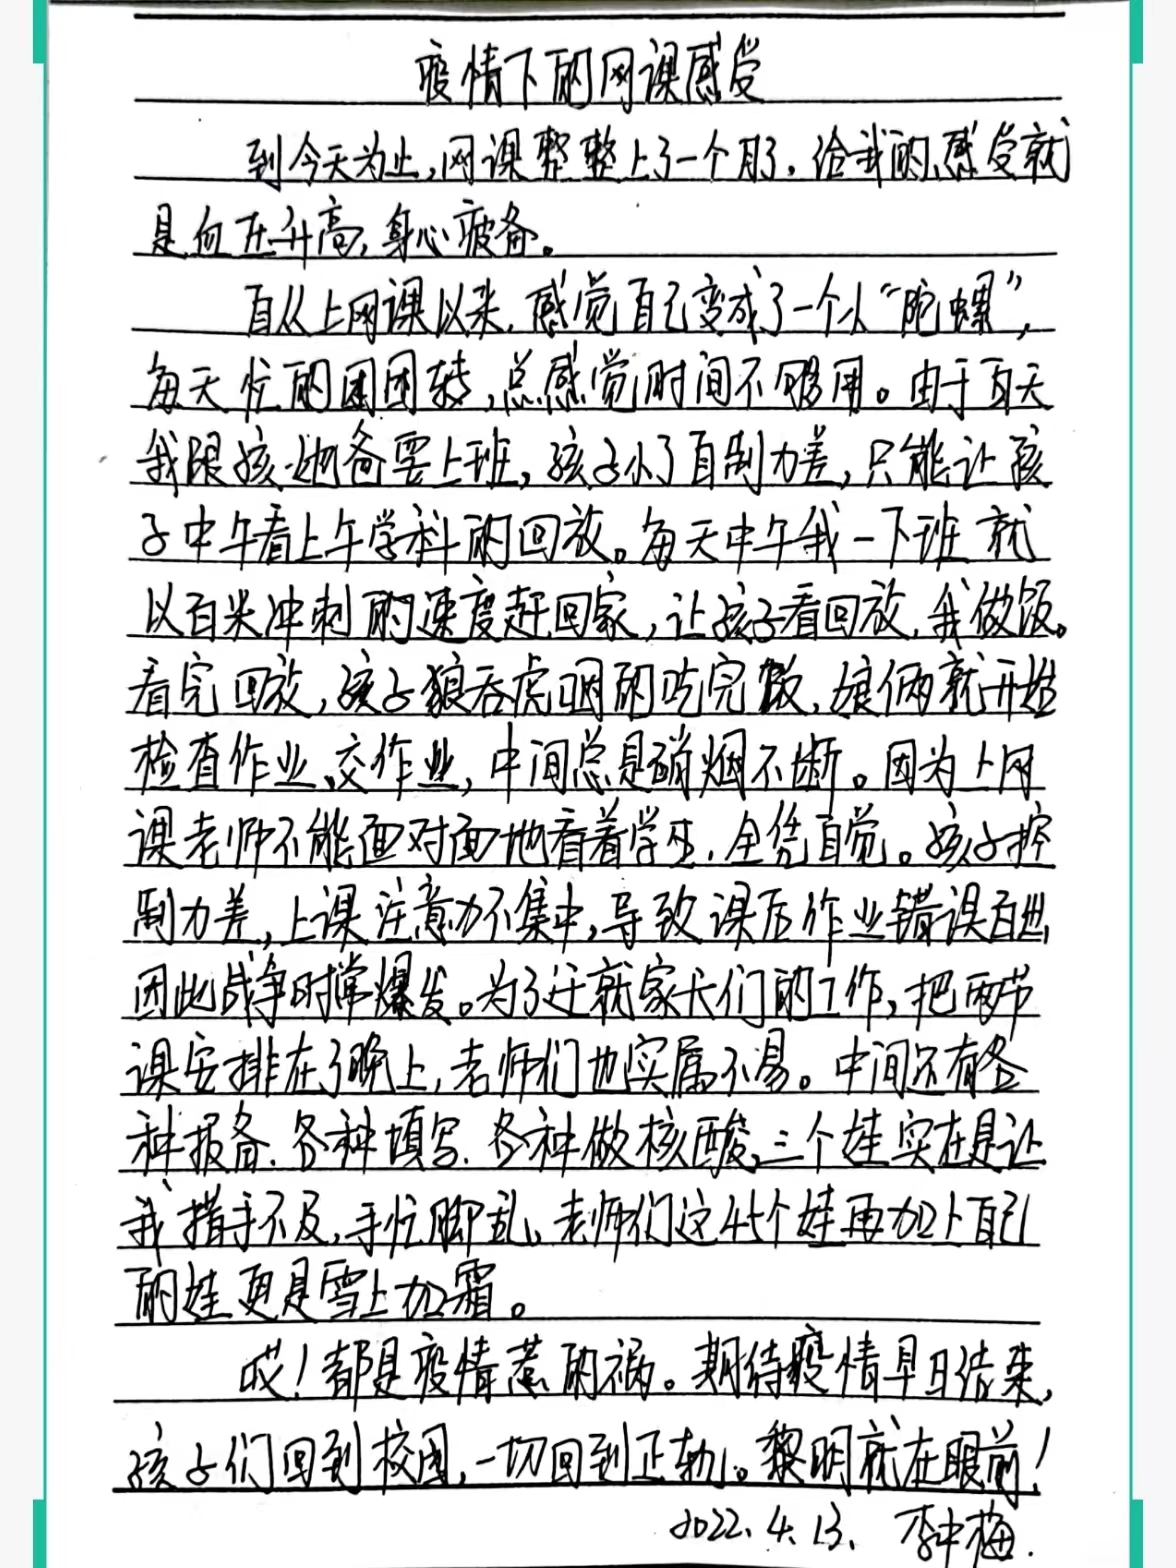 疫情下的网课感受
到今天为止,网课整整上了一个月了,给我的感受就
是血压升高,身心疲备。
自从上网课以来,感觉自己变成了一个以“陀螺”,
每天忙的团团转,总感觉时间不够用。由于白天
我跟孩他爸要上班,孩子小了自制力差,只能让孩
子中午看上午学科的回放。每天中午我一下班就
以百米冲刺的速度赶回家,让孩子看回放,我做饭。
看完回放,孩子狼吞虎咽的吃完饭,娘俩就开始
检查作业、交作业,中间总是硝烟不断。因为上网
课老师不能面对面地看着学生,全凭自觉。孩子控
制力差,上课注意力不集中,导致课后作业错误百出,
因此战争时常爆发。为了迁就家长们的工作,把两节
课安排在了晚上,老师们也实属不易。中间还有各
种报备、各种填写、各种做核酸,三个娃实在是让
我措手不及,手忙脚乱,老师们这45个娃再加上自己
的娃更是雪上加霜。
哎!都是疫情惹的祸。期待疫情早日结束,
孩子们回到校园,一切回到正轨。黎明就在眼前!
2022.4.13. 李中梅.